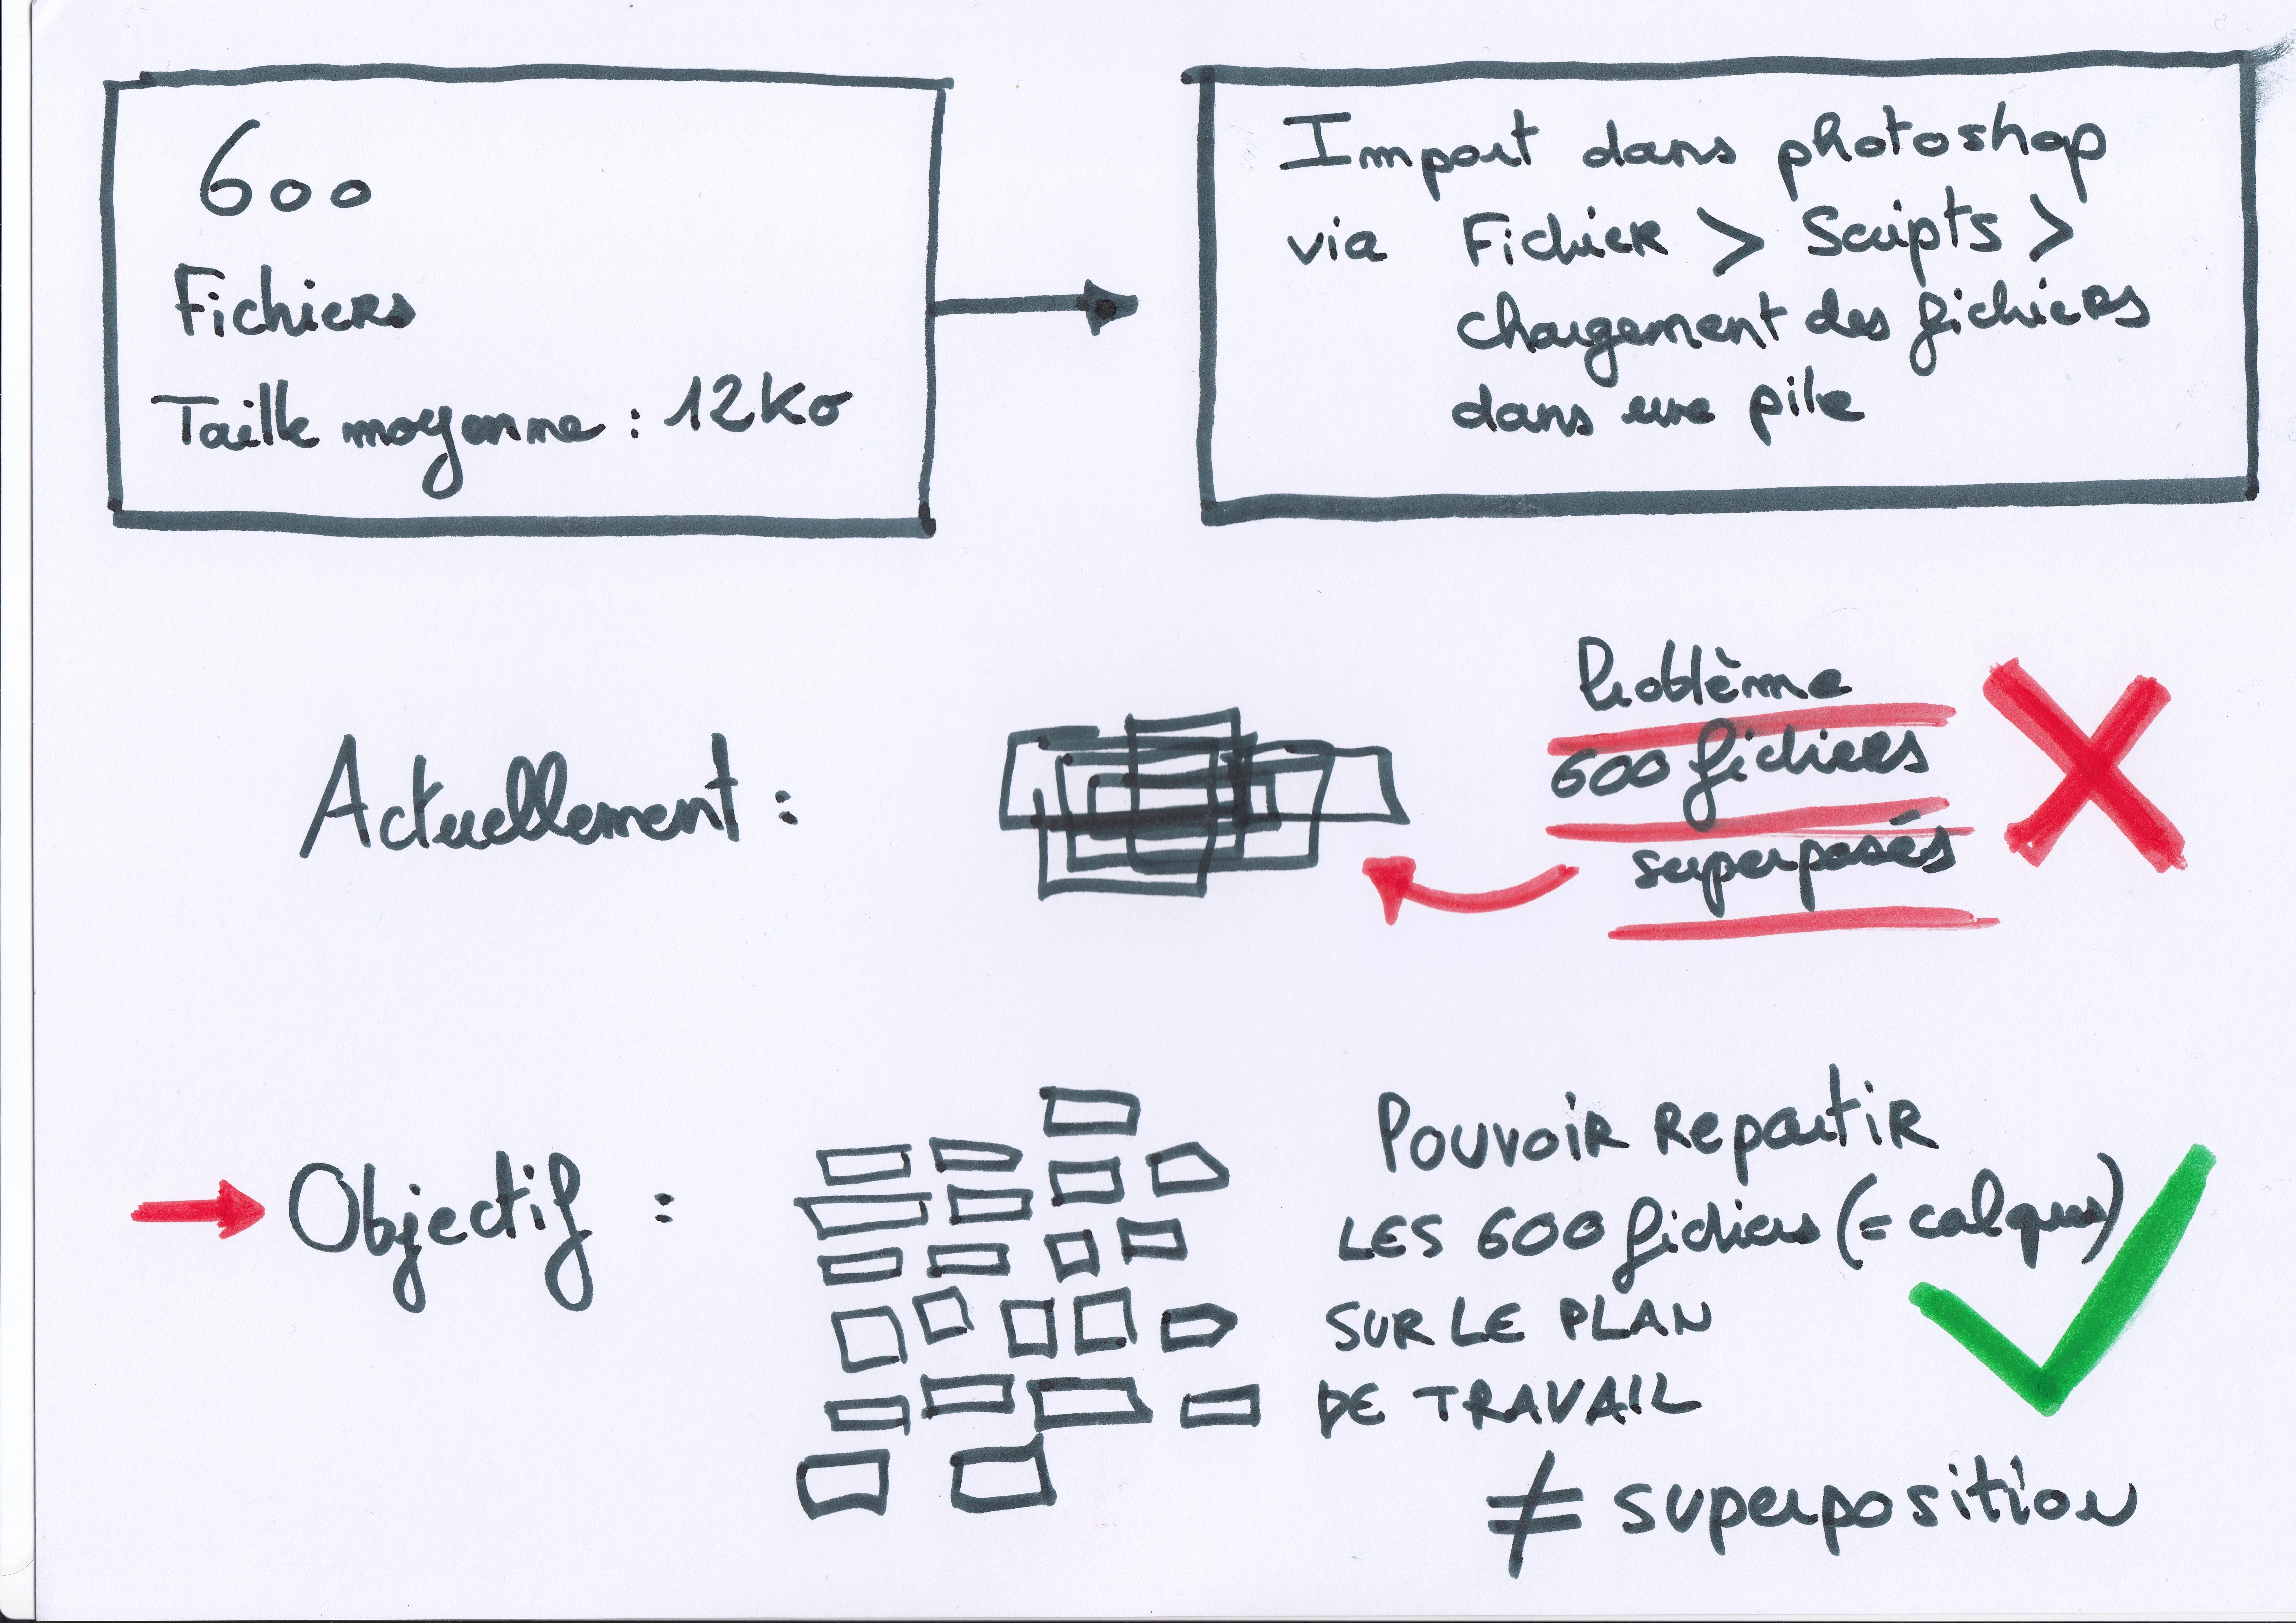 600
Fichiers
Taille moyenne : 12Ko
Import dans photoshop
via Fichier > Scripts >
chargement des fichiers
dans une pile
Actuellement :
Problème
600 fichiers
superposés
Objectif :
Pouvoir Repartir
LES 600 fichiers (= calques)
SUR LE PLAN
DE TRAVAIL
≠ superposition